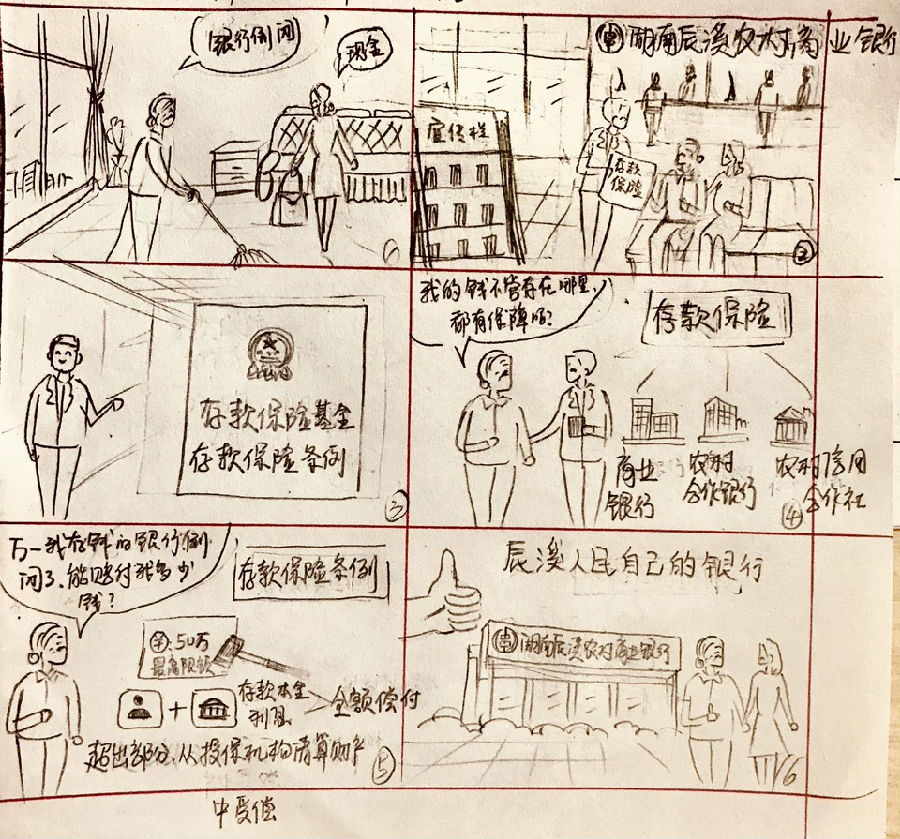 银行倒闭
现金
湖南辰溪农村商业银行
宣传栏
存款
保险
2
存款保险基金
存款保险条例
3
我的钱不管存在哪里，
都有保障吗？
存款保险
商业
银行
农村
合作银行
农村信用
合作社
4
万一我存钱的银行倒
闭了，能赔付我多少
钱？
存款保险条例
¥:50万
最高限额
+
存款本金
利息
全额偿付
超出部分，从投保机构清算财产
中受偿
5
辰溪人民自己的银行
湖南辰溪农村商业银行
6